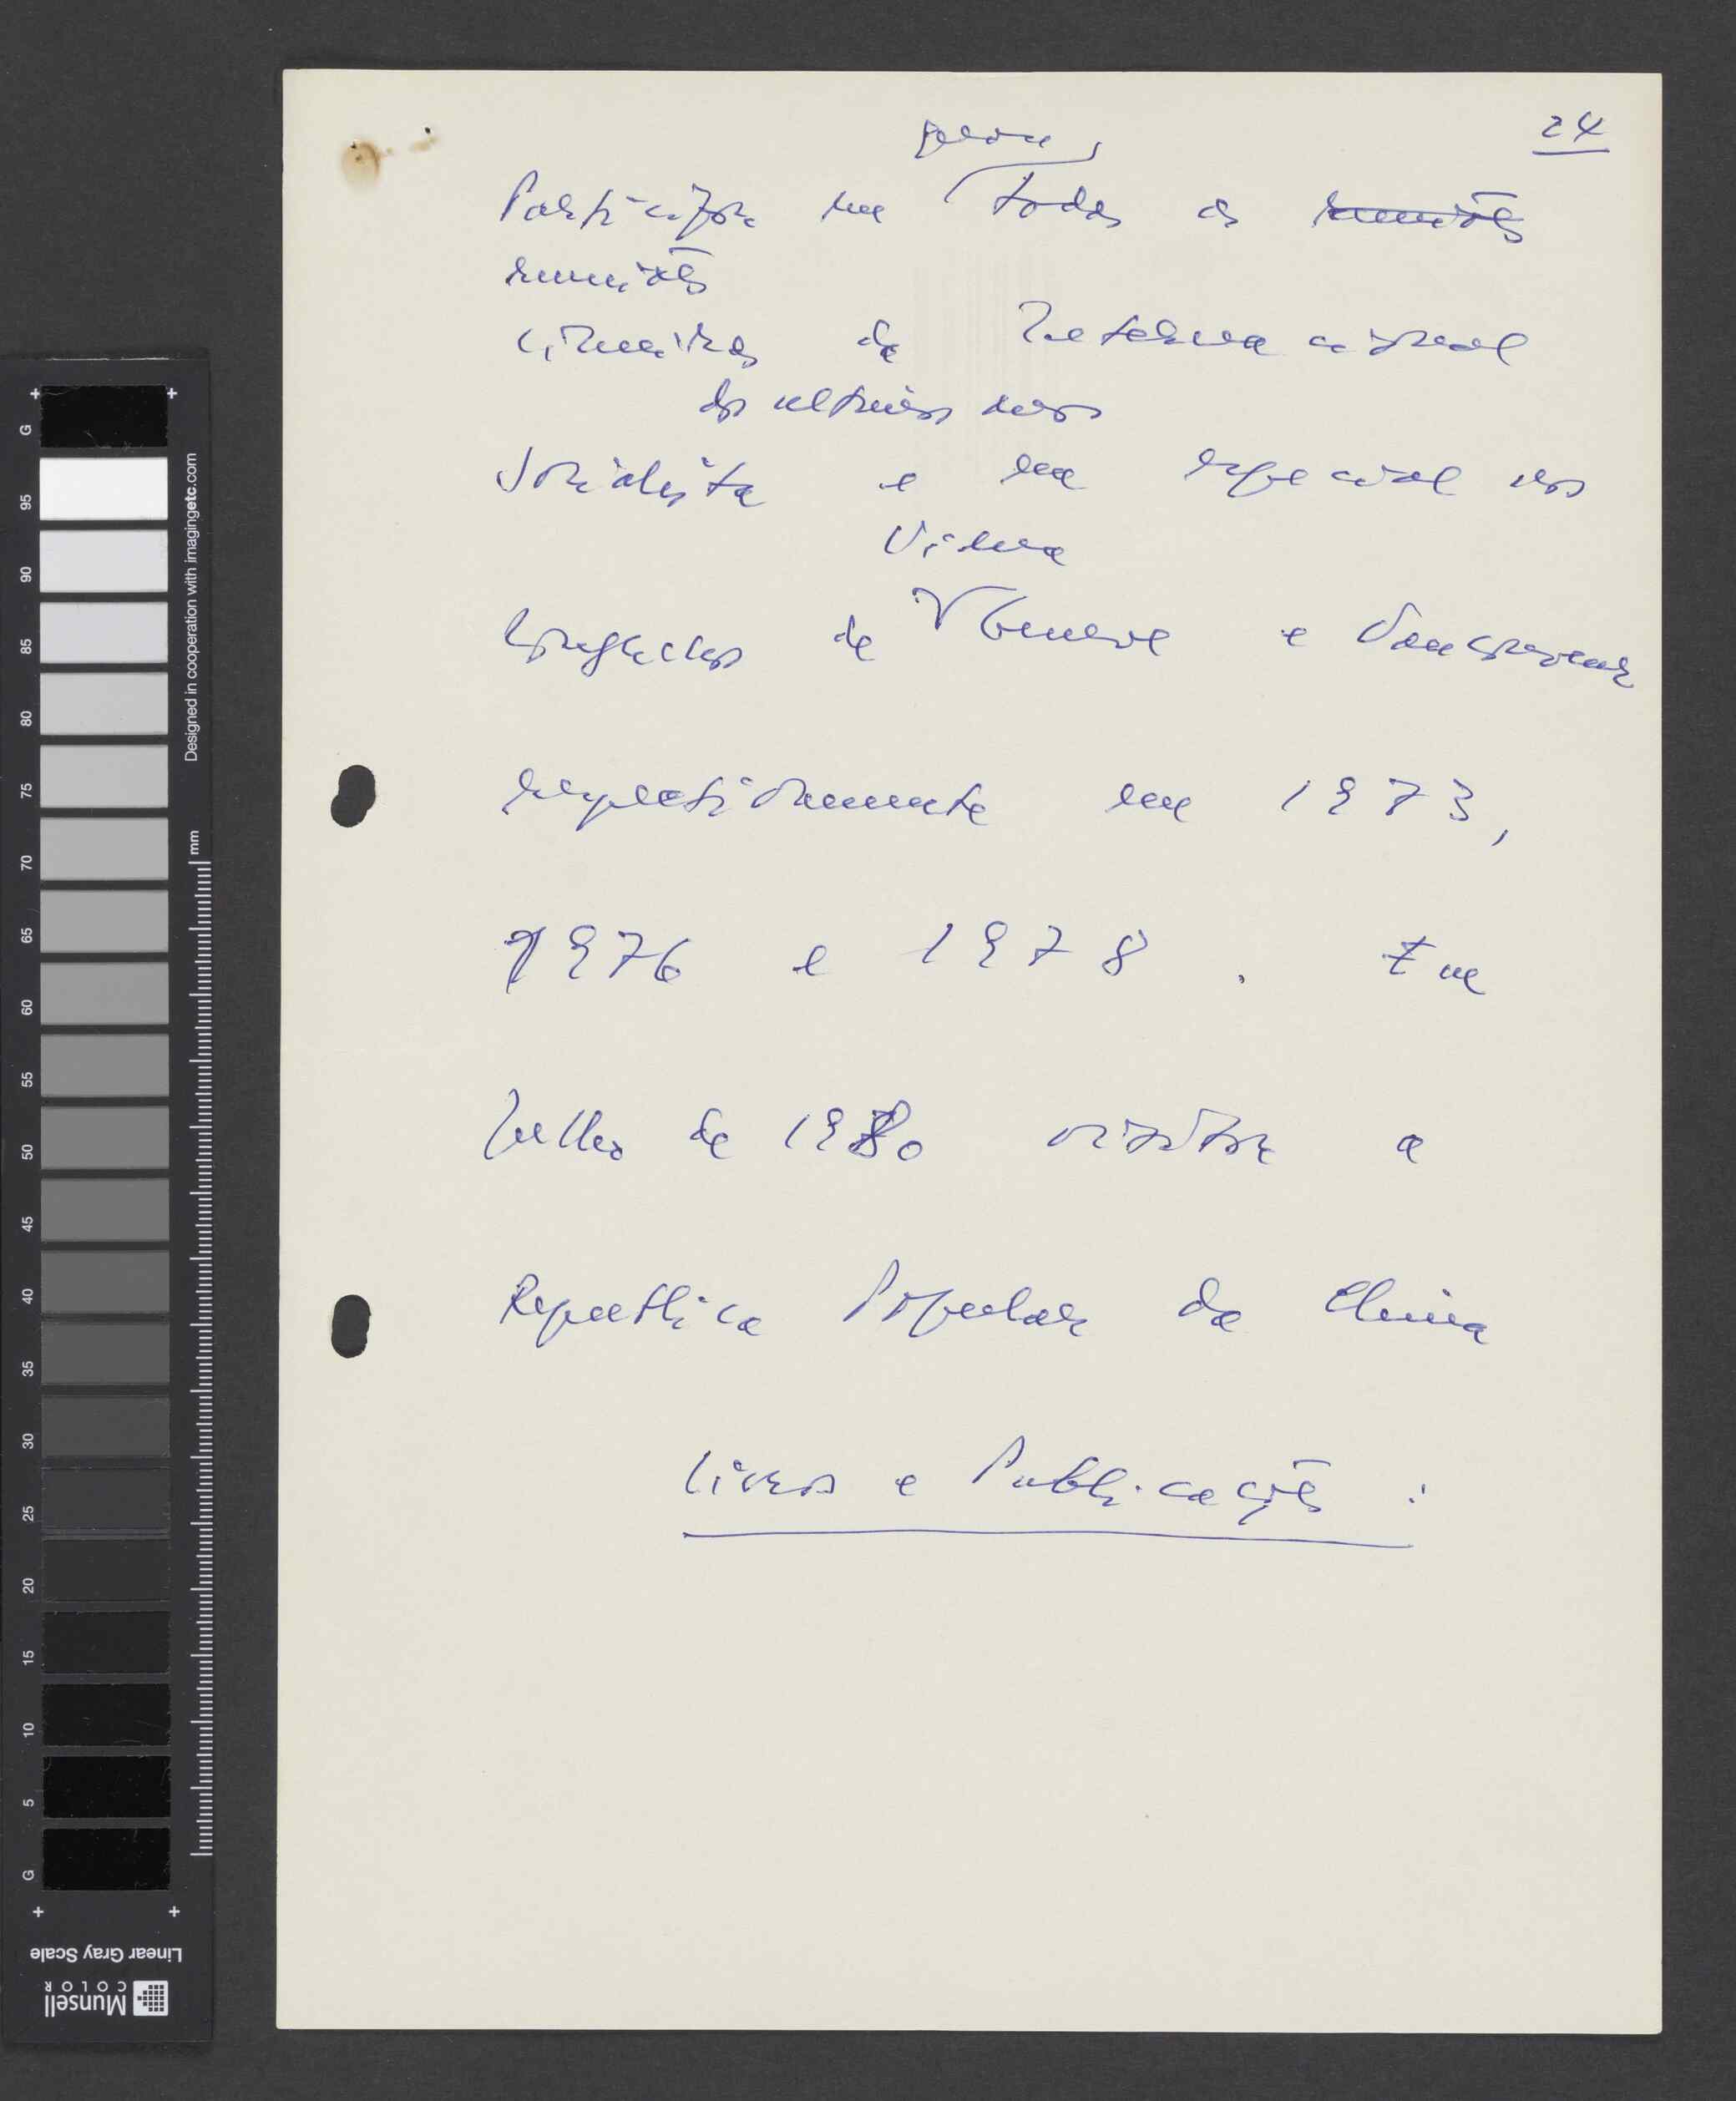 24
quase
Participou em todas as reuniões
reuniões
cimeiras da Internacional
dos ultimos anos
Socialista e em especial nos
Viena
Congressos de Geneve e Vancouver
respectivamente em 1973,
1976 e 1978. Em
Julho de 1980 visitou a
Republica Popular da China
Livros e Publicações:
G
95
90
85
80
75
70
65
60
55
50
45
40
35
30
25
20
15
10
5
G
mm
Designed in cooperation with imagingetc.com
Linear Gray Scale
Munsell
COLOR